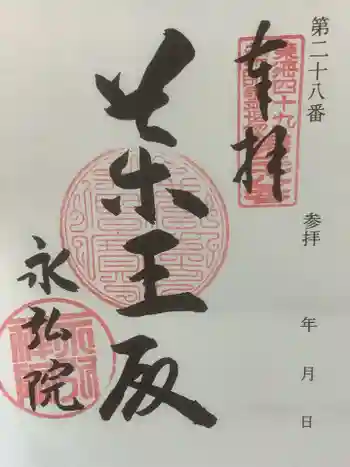 第二十八番
参拝 年 月 日
奉拝
薬王殿
永弘院